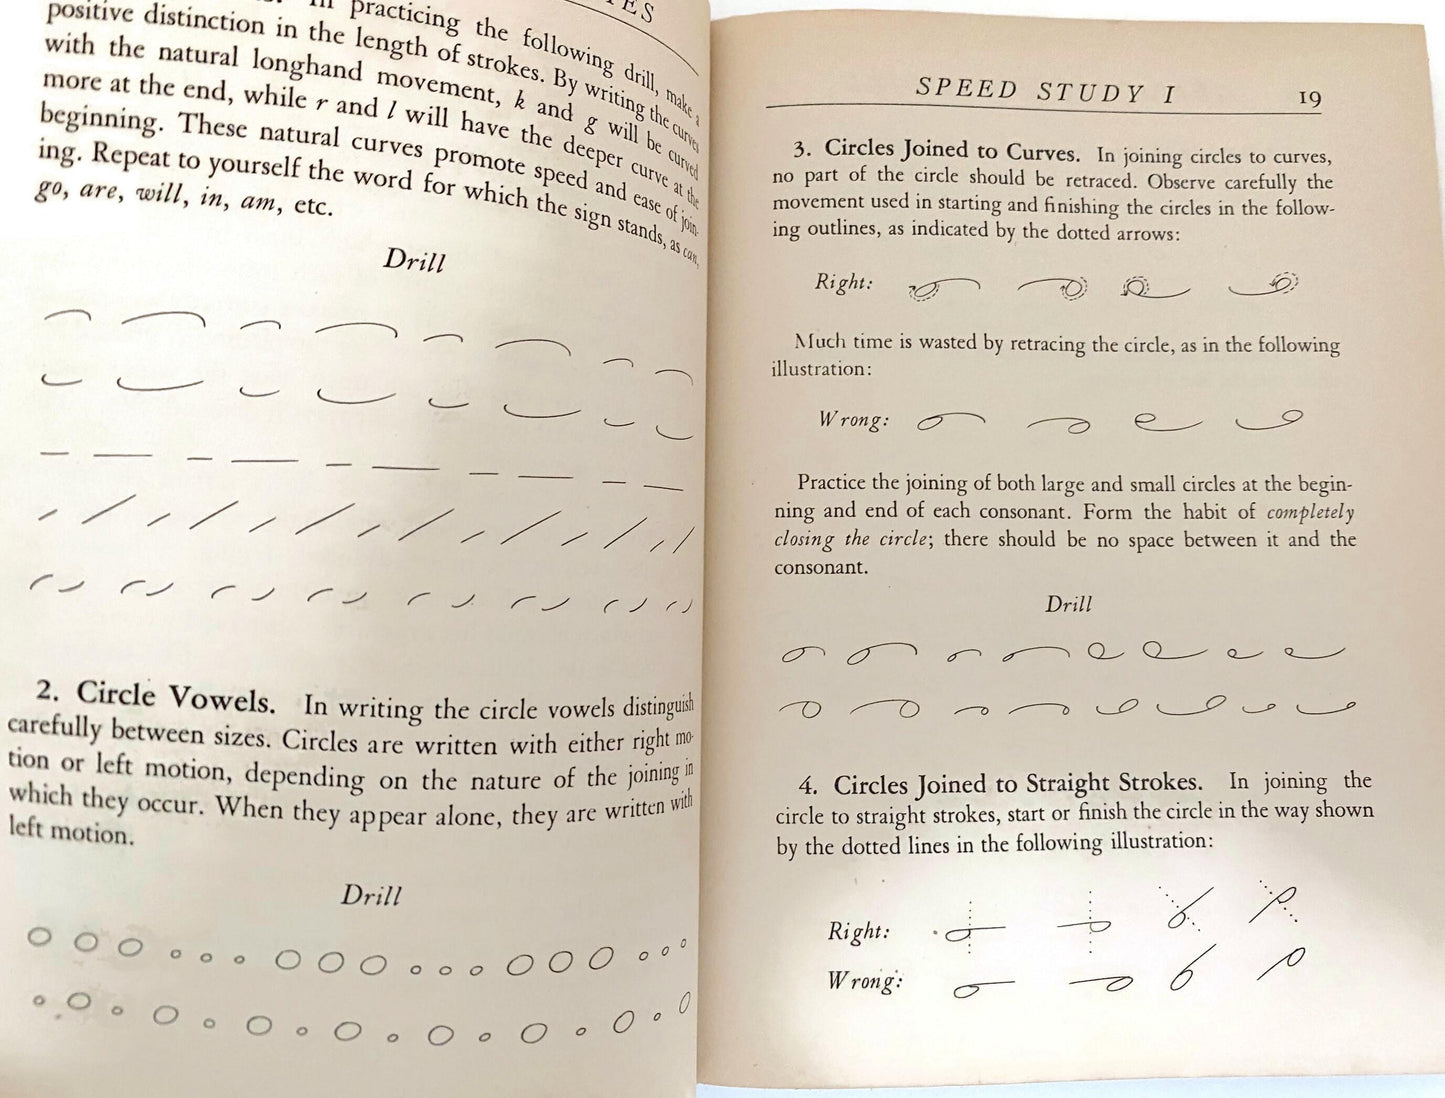 TES
In practicing the following drill, make a
positive distinction in the length of strokes. By writing the curves
with the natural longhand movement, k and g will be curved
more at the end, while r and l will have the deeper curve at the
beginning. These natural curves promote speed and ease of join-
ing. Repeat to yourself the word for which the sign stands, as can,
go, are, will, in, am, etc.
Drill
2. Circle Vowels. In writing the circle vowels distinguish
carefully between sizes. Circles are written with either right mo-
tion or left motion, depending on the nature of the joining in
which they occur. When they appear alone, they are written with
left motion.
Drill
SPEED STUDY I 19
3. Circles Joined to Curves. In joining circles to curves,
no part of the circle should be retraced. Observe carefully the
movement used in starting and finishing the circles in the follow-
ing outlines, as indicated by the dotted arrows:
Right:
Much time is wasted by retracing the circle, as in the following
illustration:
Wrong:
Practice the joining of both large and small circles at the begin-
ning and end of each consonant. Form the habit of completely
closing the circle; there should be no space between it and the
consonant.
Drill
4. Circles Joined to Straight Strokes. In joining the
circle to straight strokes, start or finish the circle in the way shown
by the dotted lines in the following illustration:
Right:
Wrong: